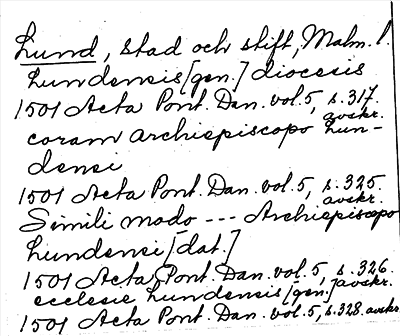 Lund, stad och stift, Malm. l.
Lundensis [gen.] diocesis
1501 Acta Pont. Dan. vol. 5, s. 317. avskr.
coram archiepiscopo Lun-
densi
1501 Acta Pont. Dan. vol. 5, s. 325. avskr.
Simili modo --- Archiepiscopo
Lundensi [dat.]
1501 Acta Pont. Dan. vol. 5, s. 326. avskr.
ecclesie Lundensis [gen.]
1501 Acta Pont. Dan. vol. 5, s. 328. avskr.